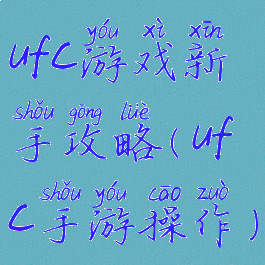 yóu xì xīn
ufc游戏新
shǒu gōng lüè
手攻略(uf
shǒu yóu cāo zuò
c手游操作)